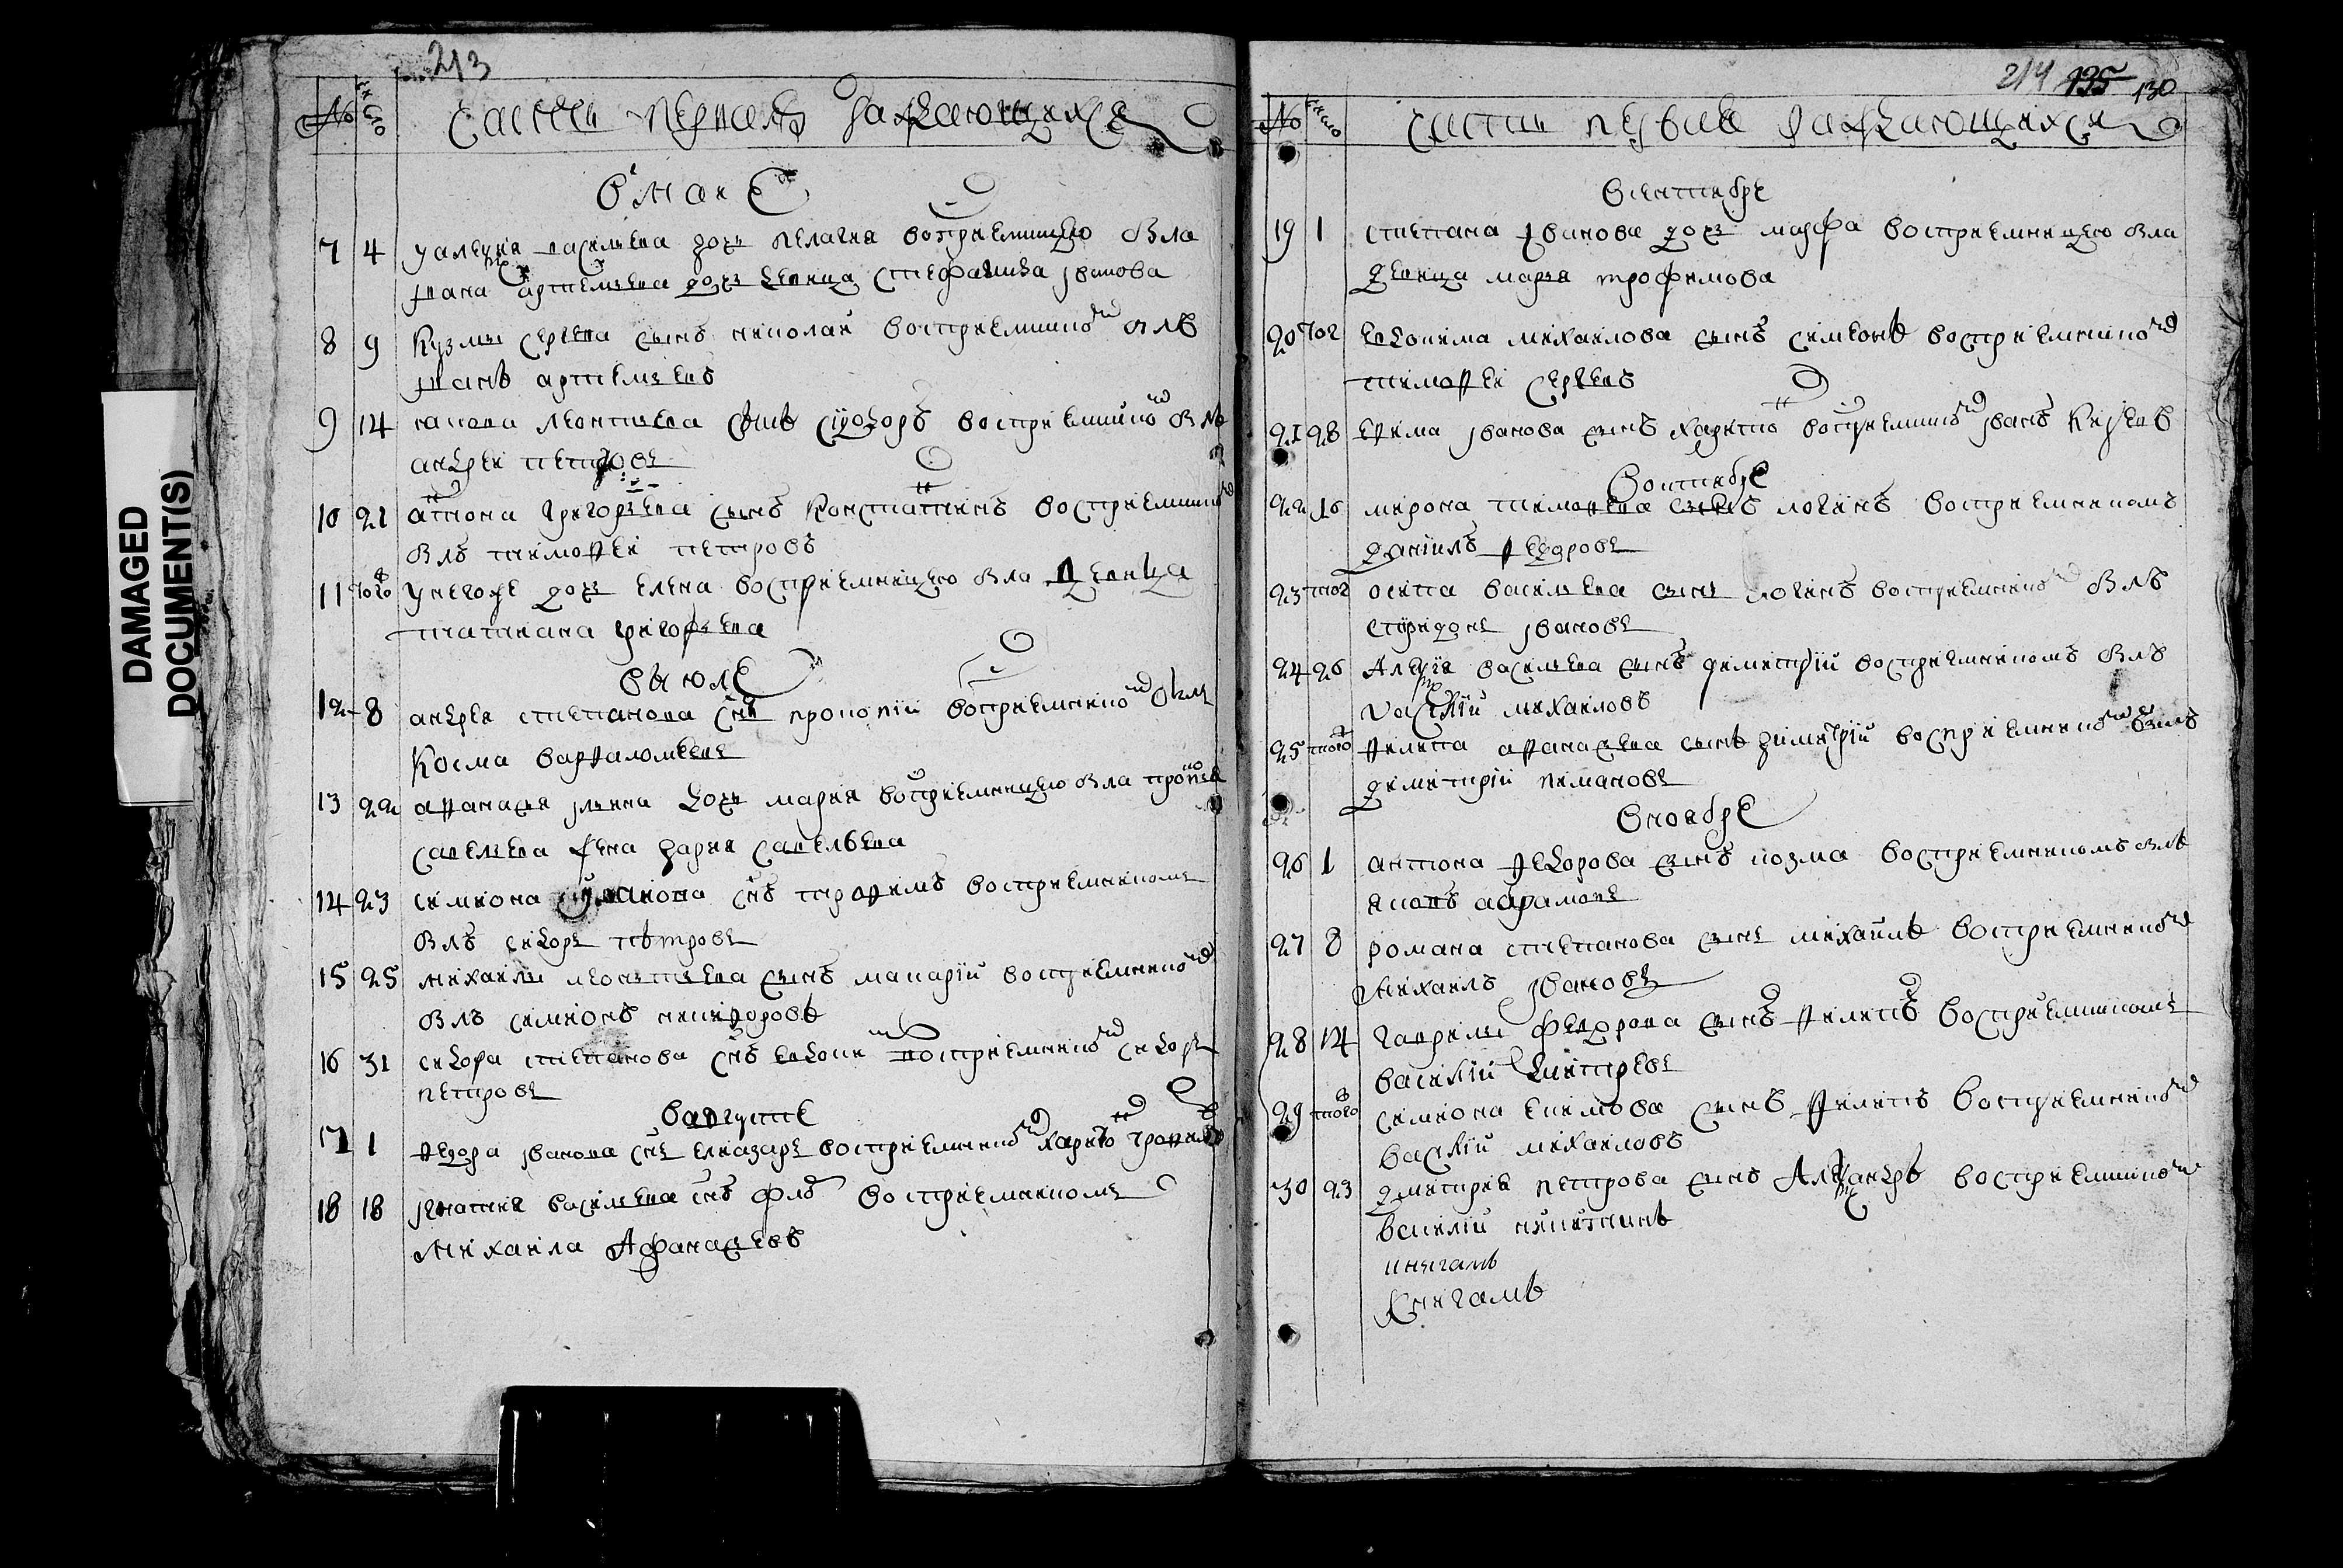 213
№ число
Части первая раждающихся
В мае
7 4 у алеѯия васильева дочь пелагия восприемницею была
ивана артемьева дочь девица стефанида иванова
8 9 Кузмы сергеева сынъ николай восприемником былъ
иванъ артемьевъ
9 14 якова леонтиева сынъ сидоръ восприемником былъ
андреи петровъ
10 21 антона григорьева сынъ Константинъ восприемником
былъ тимофеи петровъ
11 того у него же дочь елена восприемницею была девица
татиана григорьева
в июле
12 8 андрея степанова снъ прокопий восприемником былъ
Косма варфаломеевъ
13 22 афанасия дочь мария восприемницею была
савельева жена дария савельева
14 23 симиона снъ трофимъ восприемникомъ
былъ сидоръ петровъ
15 25 михаилы леонтьева сынъ макарий восприемником
былъ симионъ никифоровъ
16 31 сидора степанова снъ евдоким восприемником сидоръ
петровъ
в августе
17 1 федора иванова снъ елиазаръ восприемником харитон трофимовъ
18 18 игнатия васильева снъ флоръ восприемникомъ
Михаила Афанасьевъ
214 135 130
№ число
части первые раждающихся
В сентябре
19 1 степана иванова дочь марфа восприемницею была
девица марья трофимова
20 тог евдокима михаилова сынъ симеонъ восприемником
тимофеи сергеевъ
21 28 ефима иванова сынъ харитон восприемником иванъ
В октябре
22 16 мирона тимофеева сынъ логинъ восприемникомъ
даниилъ федоровъ
23 тог осипа васильева сынъ логинъ восприемником былъ
спиридонъ ивановъ
24 26 Алеѯия васильева сынъ димитрий восприемникомъ былъ
василий михаиловъ
25 того филипа афанасьева сынъ димитрий восприемником былъ
димитрий
В ноябре
26 1 антона федорова сынъ козма восприемникомъ былъ
яковъ абрамовъ
27 8 романа степанова сынъ михаилъ восприемником
Михаилъ ивановъ
28 14 гаврилы федорова сынъ филипъ восприемникомъ
василий димитревъ
29 того симиона екимова сынъ филипъ восприемником
василий михаиловъ
30 23 дмитрея петрова сынъ Алеѯандръ восприемником
василий никитинъ
книгамъ
Книгамъ
DAMAGED
DOCUMENT(S)